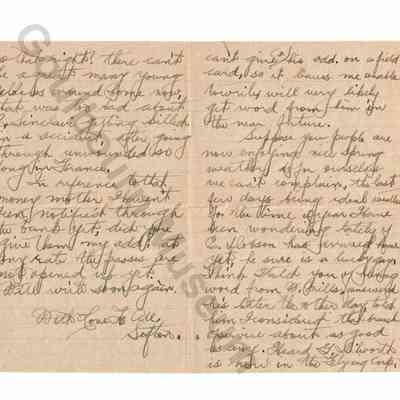 so that night! there can't
be a great many young
ladies around home now,
that was too bad about
being killed
in a accident, after going
through unwounded so
long in France.
In reference to that
money mother I haven't
been notified through
the bank yet, did you
give them my add. at
any rate the passes are
not opened up yet.
Will write soon again.
With Love to All,
Sefton.
can't give his add. on a field
card, so it leaves me unable
to write will very likely
get word from him in
the near future.
Suppose you people are
now enjoying nice spring
weather, as for ourselves
we can't complain, the last
few days being ideal weather
for the time of year. Have
been wondering lately if
C. has arrived home
yet, he sure is a lucky guy.
Think I told you of having
word from answered
his letter the other day, told
him I considered this branch
of service about as good
as any. Heard
is now in the Flying Corp.